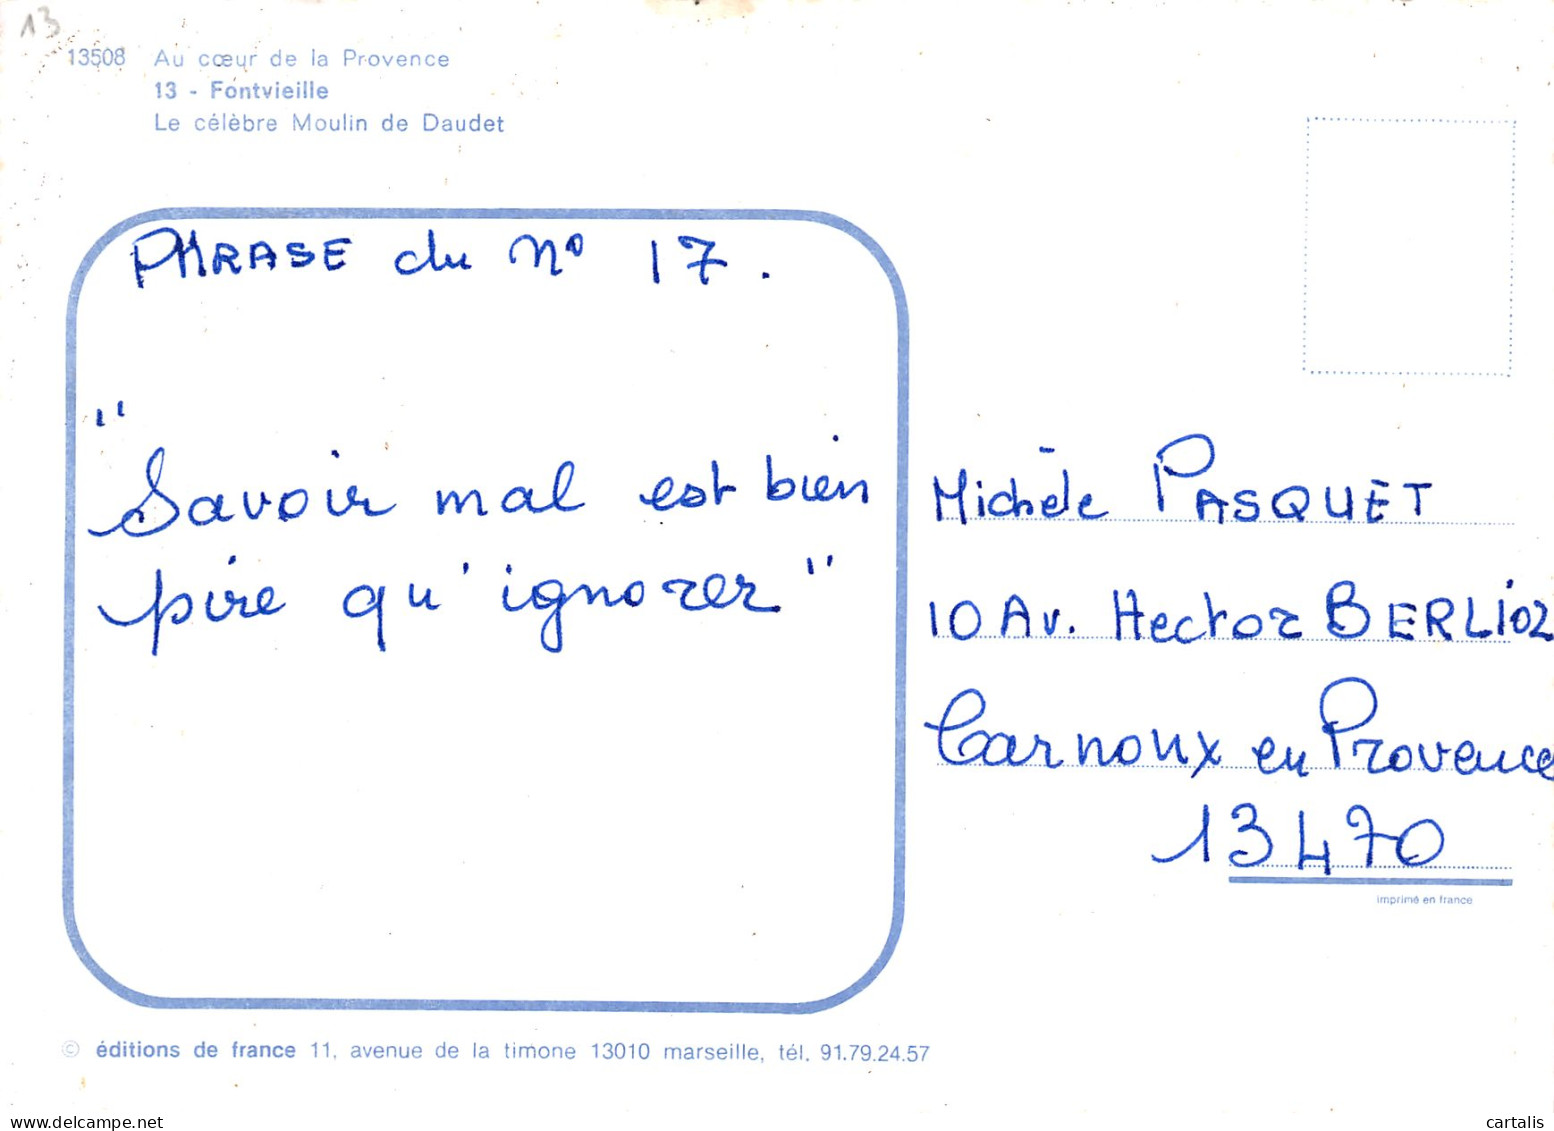 13
13508 Au cœur de la Provence
13 - Fontvieille
Le célèbre Moulin de Daudet
PHRASE du n° 17.
"Savoir mal est bien
pire qu'ignorer"
Michèle PASQUET
10 Av. Hector BERLIOZ
Carnoux en Provence
13470
imprimé en france
© éditions de france 11, avenue de la timone 13010 marseille, tél. 91.79.24.57
www.delcampe.net
cartalis